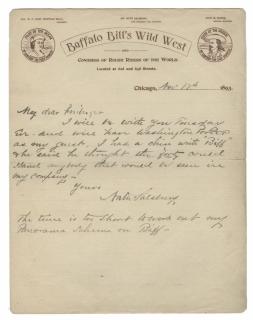 NATE SALSBURY,
Buffalo Bill's Wild West
AND
CONGRESS OF ROUGH RIDERS OF THE WORLD.
LOCATED AT 62d AND 63d STREETS.
Chicago, Nov 17th 1893.
My dear
I will be with you Tuesday
Eve - and will have Washington
as my guest. I had a chin with "Biff"
& he said he thought the party could
stand anybody that would be seen in
my company -
Yours
Nate Salsbury
The time is too short to work out my
Panorama Scheme on "Biff" -